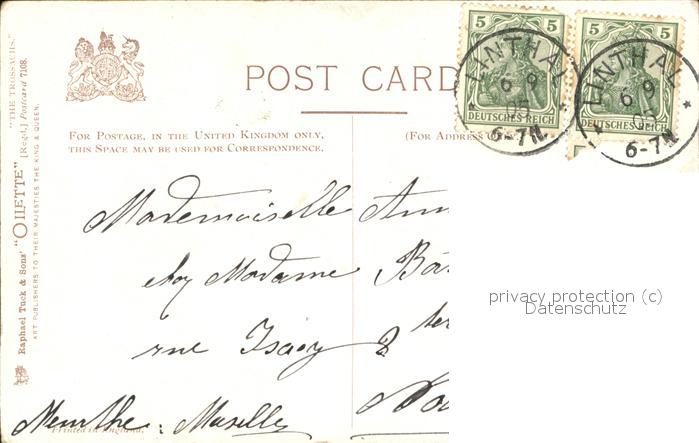 "THE TROSSACHS."
Raphael Tuck & Sons' "OILETTE" [Regd.] Postcard 7108.
ART PUBLISHERS TO THEIR MAJESTIES THE KING & QUEEN.
POST CARD
FOR POSTAGE, IN THE UNITED KINGDOM ONLY,
THIS SPACE MAY BE USED FOR CORRESPONDENCE.
(FOR ADDRESS
5 5
DEUTSCHES REICH
LINTHAL
6 9
05
6-7N
5 5
DEUTSCHES REICH
LINTHAL
6 9
05
6-7N
Mademoiselle
chez Madame
rue Isaey 8 ter
Meurthe: Moselle
Printed in England.
privacy protection (c)
Datenschutz